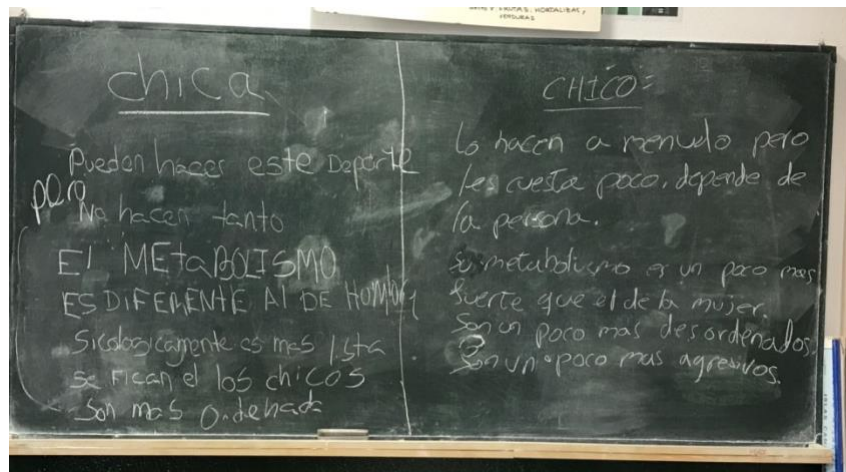 VERDURAS
chica
Pueden hacer este Deporte
pero
No hacen tanto
El METABOLISMO
ES DIFERENTE Al DE HOMbre
Sicologicamente es mas lista
se fican el los chicos
Son mas Ordenada
CHICO=
Lo hacen a menudo pero
les cuesta poco, depende de
la persona.
Su metabolismo es un poco mas
fuerte que el de la mujer.
Son un poco mas desordenados.
Son un poco mas agresivos.